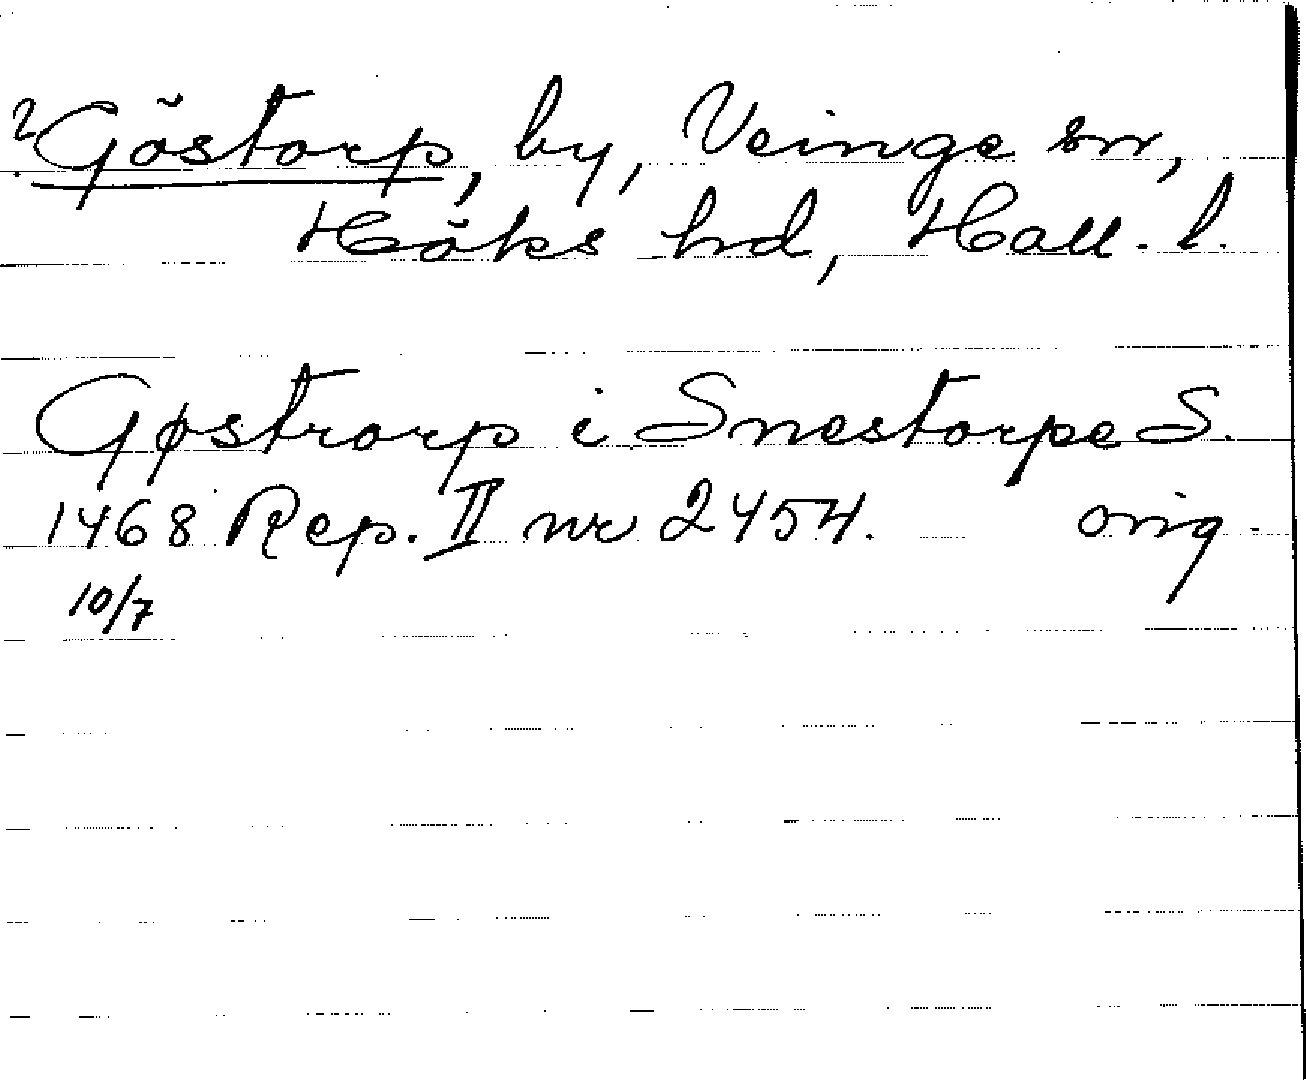 ? Göstorp, by, Veinge sn,
Höks hd, Hall. l.
Gøstrorp i Snestorpe S.
1468 Rep. II nr 2454. orig.
10/7